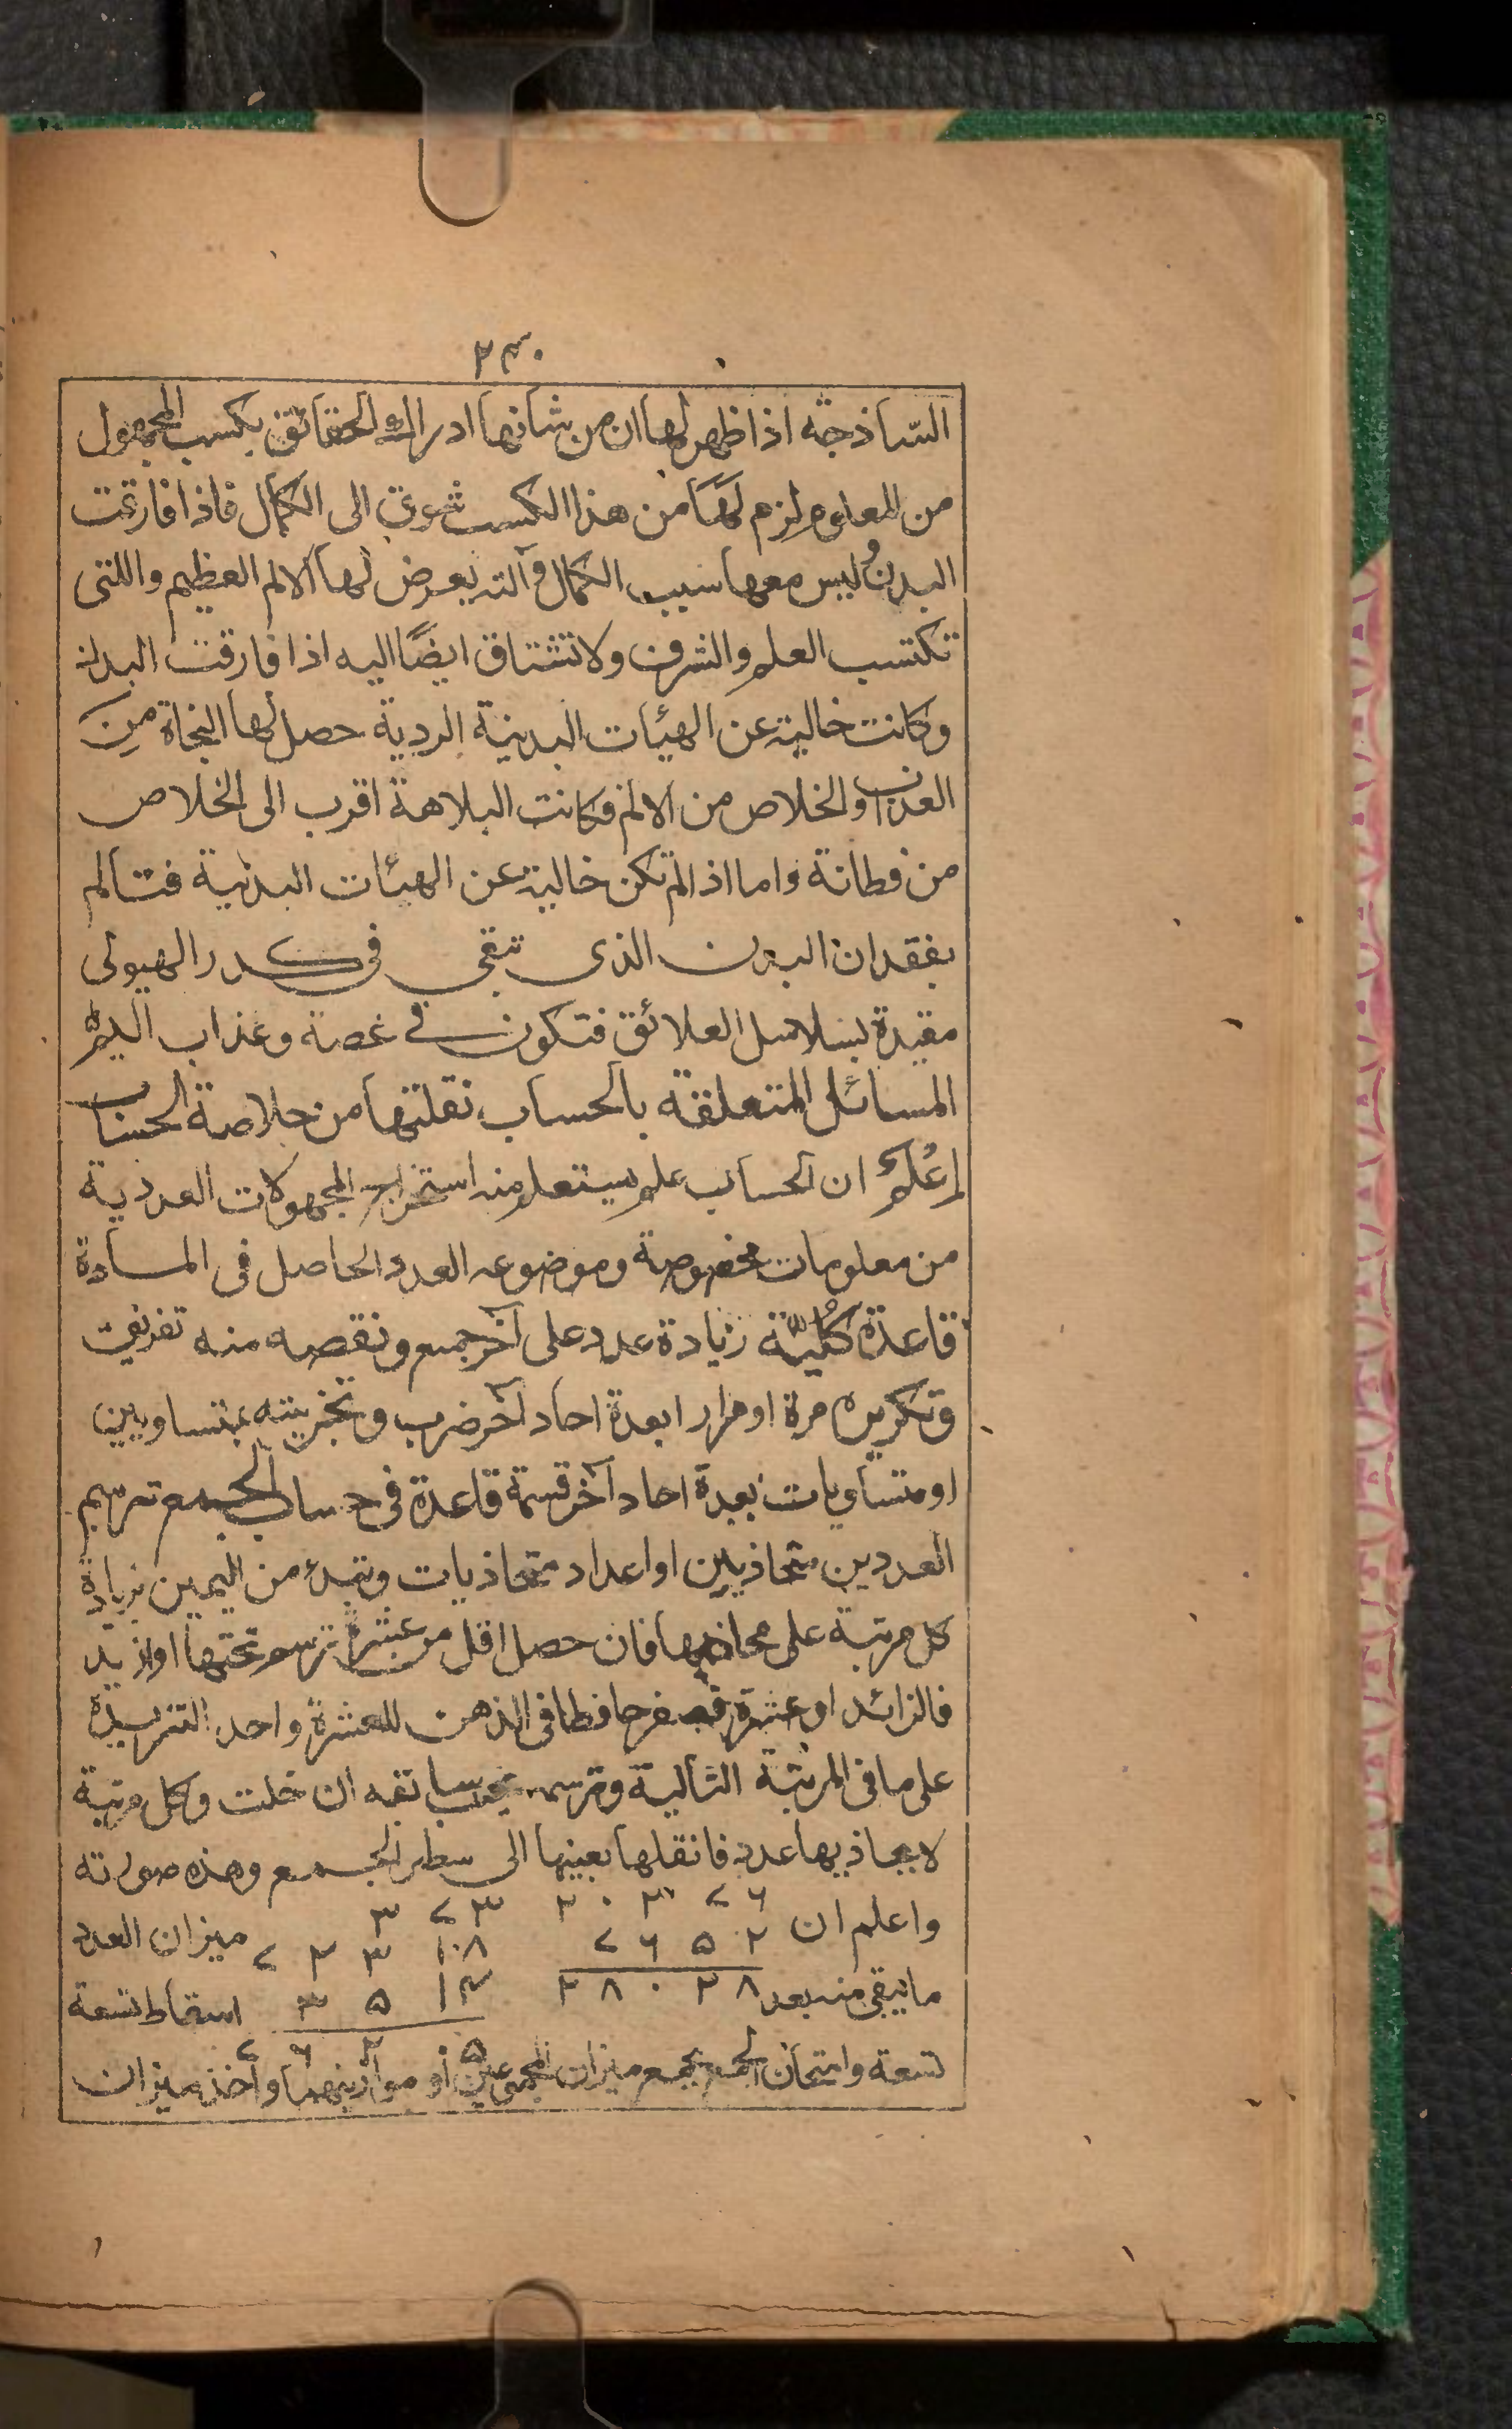 ٢٣٠
السّاذجة اذا ظهر لها ان من شانها ادراك الحقائق بكسب المجهول
من المعلوم لزم لها من هذا الكسب شوق الى الكمال فاذا فارقت
البدن وليس معها سبب الكمال وآلته يعرض لها الالم العظيم واللتى
تكتسب العلم والشرف ولا تشتاق ايضًا اليه اذا فارقت البدن
وكانت خالية عن الهيئات البدنية الردية حصل لها النجاة من
العذاب والخلاص من الالم فكانت البلاهة اقرب الى الخلاص
من فطانة واما اذا لم تكن خالية عن الهيئات البدنية فتتالم
بفقدان البدن الذى تبقى فى كدر الهيولى
مقيدة بسلاسل العلائق فتكون في غصة وعذاب اليم
المسائل المتعلقة بالحساب نقلتها من خلاصة الحساب
اِعْلم ان الحساب علم يستعلم منه استخراج المجهولات العددية
من معلومات مخصوصة وموضوعه العدد الحاصل فى المادة
قاعدة كُلّيّة زيادة عدد على آخر جمع ونقصه منه تفريق
وتكريره مرة او مرارا بعدة احاد آخر ضرب وتجزيته بمتساويين
او متساويات بعدة احاد آخر قسمة قاعدة فى حساب الجمع ترسم
العددين متحاذيين او اعداد متحاذيات وتبدء من اليمين بزيادة
كل مرتبة على محاذيها فان حصل اقل من عشرة ترسم تحتها او ازيد
فالزائد او عشرة فصفر حافظا فى الذهن للعشرة واحد التزيده
على ما فى المرتبة التالية وترسمه بجنب سابقه ان خلت وكل مرتبة
لا يحاذيها عدد فانقلها بعينها الى سطر الجمع وهذه صورته
واعلم ان ٢٠٣٧٦ ٣٧٣ ميزان العدد
٧٦٥٢ ٧٢٣١٠٨
ما يبقى منه بعد ٢٨٠٢٨ ٣٥١٤ اسقاط تسعة
٧٦٢٥
تسعة وامتحان الجمع بجمع ميزان المجموعين او موازينهما واخذ ميزان